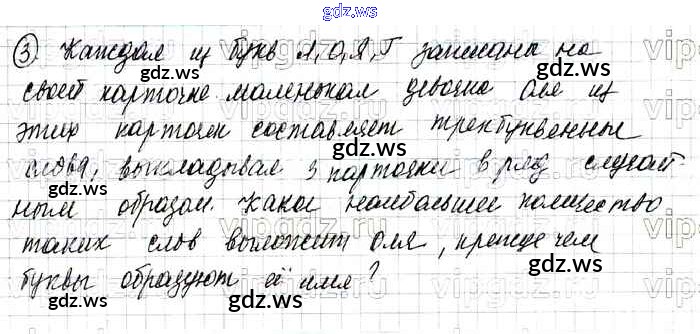 ③ Каждая из букв Л, О, Я, Г записаны на
своей карточке маленькая девочка Оля из
этих карточек составляет трехбуквенные
слова, выкладывая 3 карточки в ряд случай
ным образом. Какое наибольшее количество
таких слов выложит Оля, прежде чем
буквы образуют её имя?
gdz.ws
gdz.ws
gdz.ws
gdz.ws
gdz.ws
gdz.ws
gdz.ws
gdz.ws
gdz.ws